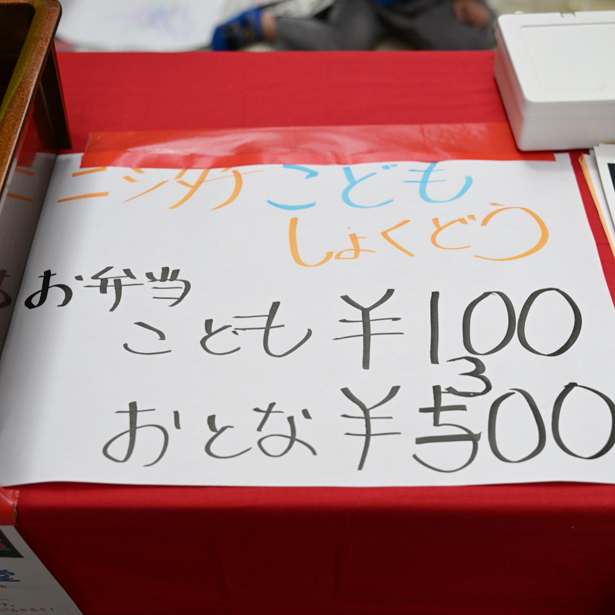 ニシダナこども
しょくどう
お弁当
こども ¥100
おとな ¥300